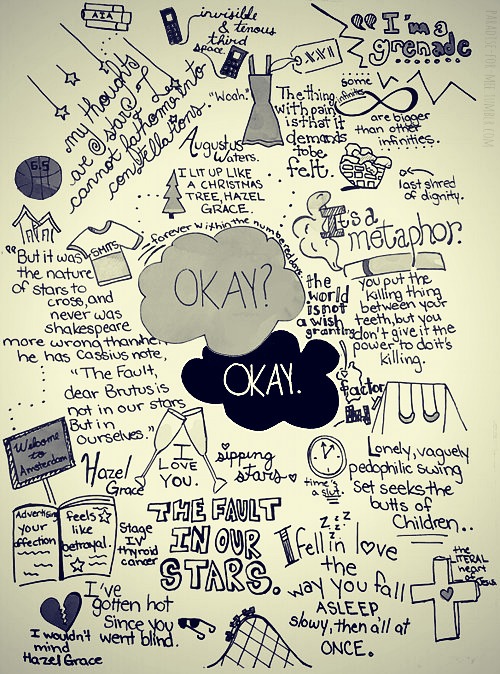 AIA
invisible
& tenous
third
space
"Woah."
XXVI
"I'm a
grenade
my thoughts
are stars I
cannot fathom into
constellations.
Augustus
Waters.
The thing
with pain
is that it
demands
to be
felt.
some
infinities
are bigger
than other
infinities.
last shred
of dignity.
I LIT UP LIKE
A CHRISTMAS
TREE, HAZEL
GRACE.
SMITS
forever within the numbered days.
It's a
metaphor.
you put the
killing thing
between your
teeth, but you
don't give it the
power to do it's
killing.
"But it was
the nature
of stars to
cross, and
never was
shakespeare
more wrong than when
he has Cassius note,
"The Fault,
dear Brutus is
not in our stars
But in
ourselves."
OKAY?
OKAY.
the
world
is not
a wish
granting
factory
Welcome
to
Amsterdam
Hazel
Grace
I
LOVE
YOU.
sipping
stars
time's
a slut.
Lonely, vaguely
pedophilic swing
set seeks the
butts of
Children..
Advertising
your
affection
feels
like
betrayal.
Stage
IV
thyroid
cancer
THE FAULT
IN OUR
STARS.
z z z z
I fell in love
the
way you fall
ASLEEP
slowy, then all at
ONCE.
the
LITERAL
heart
of
Jesus
I've
gotten hot
Since you
went blind.
I wouldn't
mind
Hazel Grace